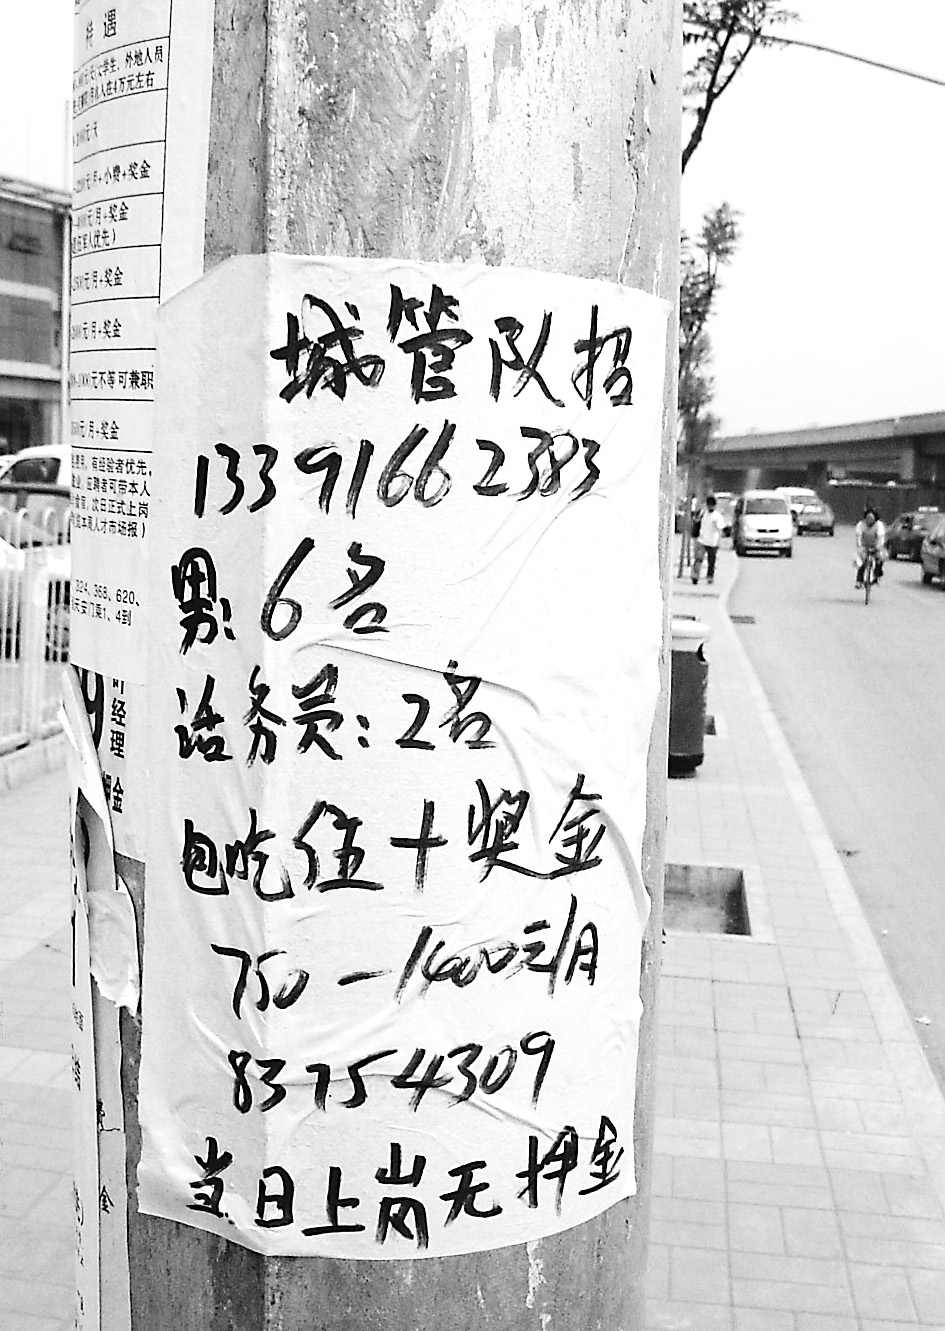 待遇
学生、外地人员
入在4万元左右
元/天
元/月+小费+奖金
元/月+奖金
军人优先)
元/月+奖金
元/月+奖金
元不等 可兼职
元/月+奖金
有经验者优先,
应聘者可带本人
次日正式上岗
人才市场报)
324、368、620、
天安门乘1、4到
9
经理
金
城管队招
13391662383
男:6名
话务员:2名
包吃住+奖金
750—1400元/月
83754309
当日上岗无押金